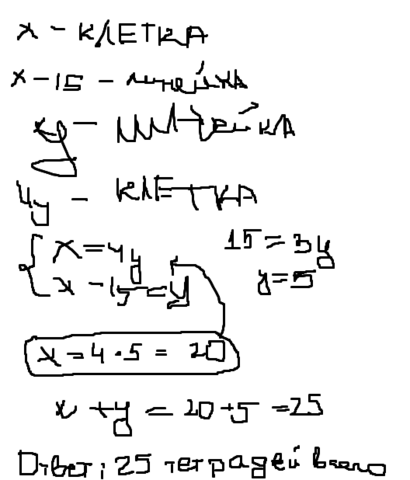 x - КЛЕТКА
x - 15 - линейка
y - линейка
4y - КЛЕТКА
{ x = 4y
x - 15 = y
15 = 3y
y = 5
x = 4 · 5 = 20
x + y = 20 + 5 = 25
Ответ: 25 тетрадей всего